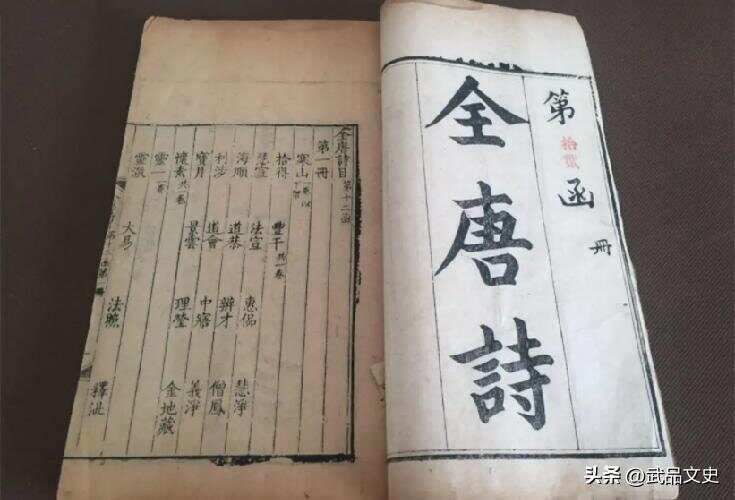 第拾貳函 冊
全唐詩
全唐詩目 第十二函
第一冊
寒山
拾得 豐干 共一卷
慧宣 法宣 惠偘 慧淨
海順 道恭 辨才 僧鳳
利涉 道會 中寤 義淨
寶月 景雲 理瑩 金地藏
懷素 共一卷
靈一 一卷
靈澈 大易 法照 釋泚
头条 @武品文史